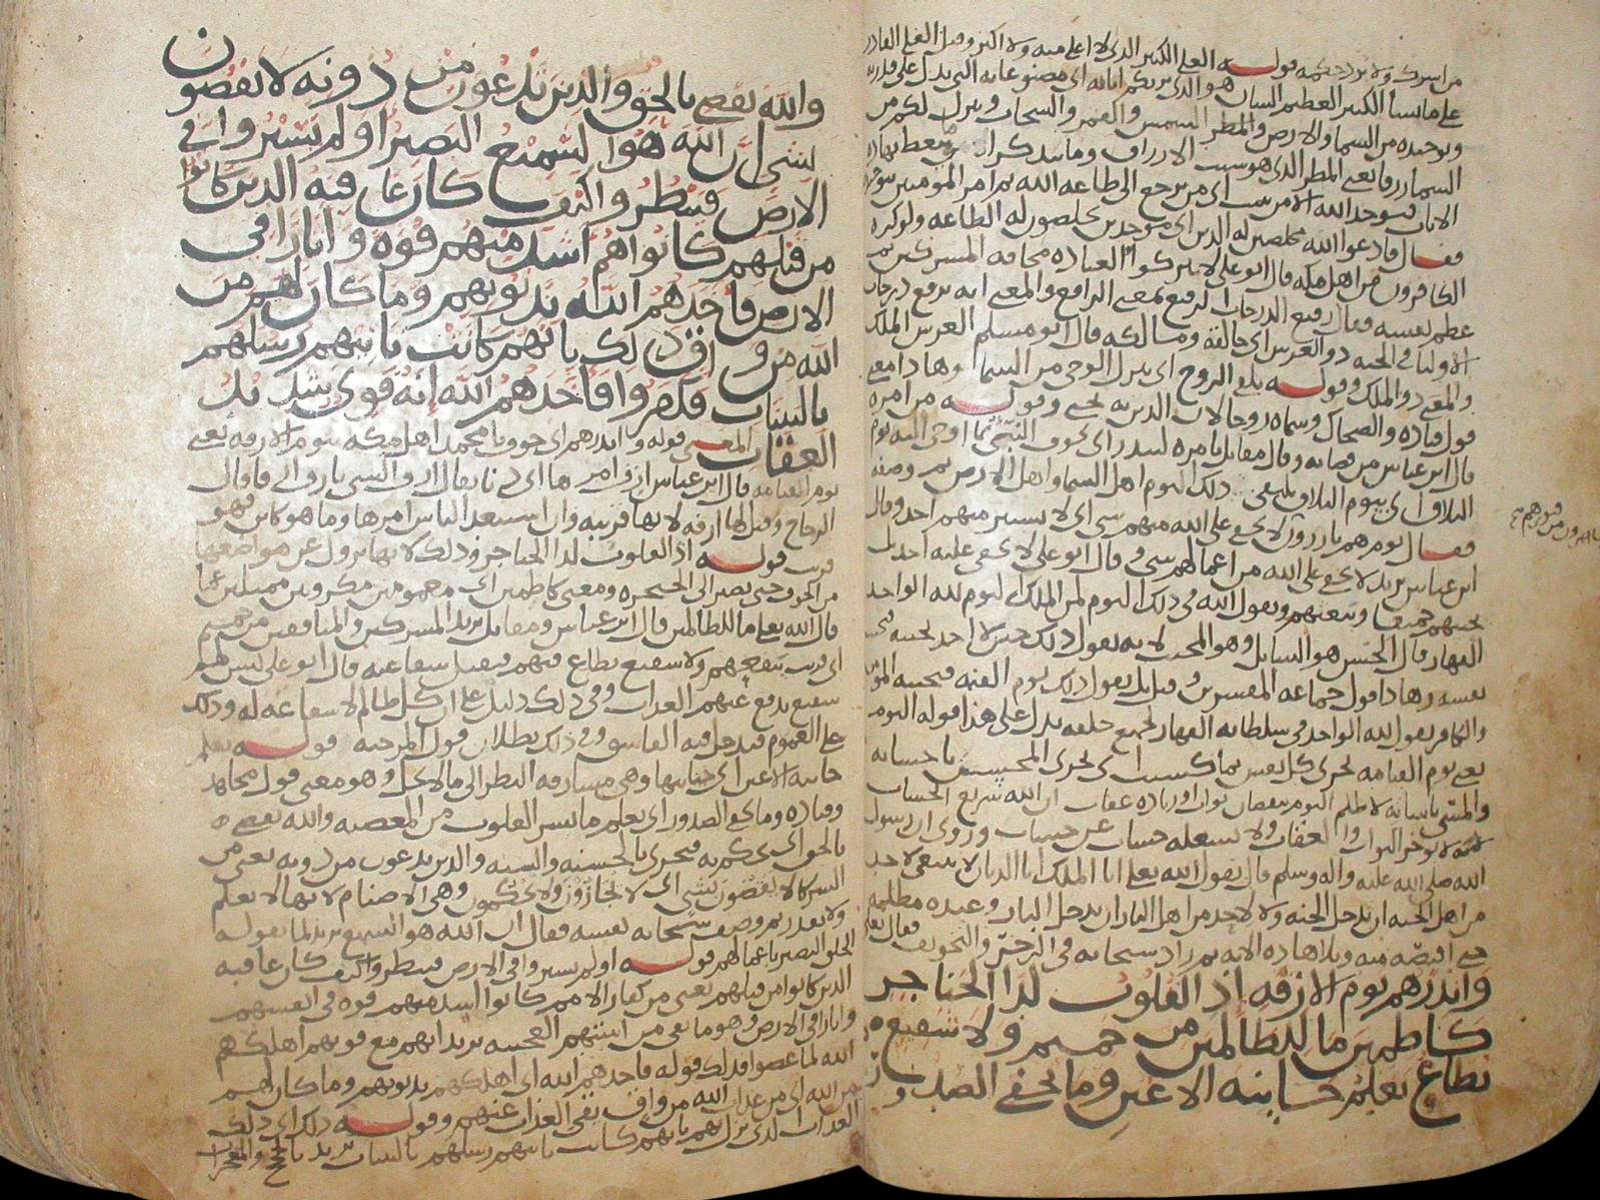 من اشرك ولا يرد حكمه قوله العلي الكبير الذي لا اعلى منه ولا اكبر وقيل العلي القادر
على ما يشا الكبير العظيم الشان هو الذي يريكم اياته اي مصنوعاته التي تدل على قدرته
وتوحيده من السما والارض والمطر والشمس والقمر والسحاب وينزل لكم من
السما رزقا يعني المطر الذي هو سبب الارزاق وما يتذكر اي يتعظ بهاذه
الايات فيوحد الله الا من ينيب اي من يرجع الى طاعه الله ثم امر المومنين بتوحيده
فقال فادعوا الله مخلصين له الدين اي موحدين مخلصون له الطاعه ولو كره
الكافرون من اهل مكه قال ابو علي لا تتركوا العباده مخافه المشركين ثم
عظم نفسه فقال رفيع الدرجات الرفيع بمعنى الرافع والمعنى انه يرفع درجات
الاوليا في الجنه ذو العرش اي خالقه ومالكه قال ابو مسلم العرش الملك
والمعنى ذو الملك وقوله يلقي الروح اي ينزل الوحي من السما وهاذا معنى
قول قتاده والضحاك وسماه روحا لان الدين به يحيى وقوله من امره
قال ابن عباس من قضايه وقال مقاتل بامره لينذر اي يخوف النبي بما اوحى اليه يوم
التلاق اي بيوم التلاق يلتقي ذلك اليوم اهل السما واهل الارض ثم وصفه
فقال يوم هم بارزون لا يخفى على الله منهم شي اي لا يستتر منهم احد وقال
ابن عباس يريد لا يخفى على الله من اعمالهم شي وقال ابو علي لا يخفى عليه احد بل
يحييهم جميعا ويبعثهم ويقول الله في ذلك اليوم لمن الملك اليوم لله الواحد
القهار قال الحسن هو السايل وهو المجيب لانه يقول ذلك حين لا احد يجيبه فيجيب
نفسه وهاذا قول جماعه المفسرين وقيل بل يقول ذلك يوم القيمه فيجيبه المومن
والكافر يقول لله الواحد في سلطانه القهار لجميع خلقه يدل على هذا قوله اليوم
يعني يوم القيامه تجزى كل نفس بما كسبت اي يجزى المحسن باحسانه
والمسي باساته لا ظلم اليوم بنقصان ثواب او زياده عقاب ان الله سريع الحساب
لانه لا يوخر الثواب والعقاب ولا يشغله حساب عن حساب وروي ان رسول
الله صلى الله عليه واله وسلم قال يقول الله تعالى انا الملك انا الديان لا ينبغي لاحد
من اهل الجنه ان يدخل الجنه ولا لاحد من اهل النار ان يدخل النار وعنده مظلمه
حتى اقتصه منه وتلا هاذه الايه ثم زاد سبحانه في الزجر والتخويف فقال تعالى
وانذرهم يوم الازفه اذ القلوب لدا الحناجر
كاظمين ما للظالمين من حميم ولا شفيع
يطاع يعلم خاينه الاعين وما تخفي الصدور
والله يقضي بالحق والذين تدعون من دونه لا يقضون
بشي ان الله هوا لسميع البصير اولم يسيروا في
الارض فينظروا كيف كان عاقبه الذين كانوا
من قبلهم كانوا هم اشد منهم قوه واثارا في
الارض فاخذهم الله بذنوبهم وما كان لهم من
الله من واق ذلك بانهم كانت تاتيهم رسلهم
بالبينات فكفروا فاخذهم الله انه قوي شديد
العقاب المعنى قوله وانذرهم اي خوف يا محمد اهل مكه بيوم الازفه يعني
يوم القيامه قال ابن عباس ازف امرها اي دنا يقال ازف الشي يازف الى قاوال
الزجاج وقيل لها ازفه لانها قريبه وان استبعد الناس امرها وما هو كاين فهو
قريب قوله اذ القلوب لدا الحناجر وذلك لانها تزول عن مواضعها
من الخوف حتى تصير الى الحنجره ومعنى كاظمين اي مغمومين مكروبين ممتلين غما
قال الله تعالى ما للظالمين قال ابن عباس ومقاتل يريد المشركين والمنافقين من حميم
اي قريب ينفعهم ولا شفيع يطاع فيهم فيقبل شفاعته قال ابو علي ليس لهم
شفيع يدفع عنهم العذاب وفي ذلك دليل على ان كل ظالم لا شفاعه له وذلك
على العموم فيدخل فيه الفاسق وفي ذلك بطلان قول المرجيه قوله يعلم
خاينه الاعين اي خيانتها وهي مسارقه النظر الى ما لا يحل وهو معنى قول مجاهد
وقتاده وما تخفي الصدور اي يعلم ما تسر القلوب من المعصيه والله يقضي
بالحق اي يحكم به فيجزى بالحسنه والسيه والذين يدعون من دونه يعني من
الشركا لا يقضون بشي اي لا يجازون ولا يحكمون وهي الاصنام لانها لا تعلم
ولا تقدر ثم وصف سبحانه نفسه فقال ان الله هو السميع يريد لما يقوله
الخلق البصير باعمالهم قوله اولم يسيروا في الارض فينظروا كيف كان عاقبه
الذين كانوا من قبلهم يعني من كفار الامم كانوا اشد منهم قوه في انفسهم
واثارا في الارض وهو ما بقي من ابنيتهم العجيبه يريد انهم مع قوتهم اهلكهم
الله لما عصوا فذلك قوله فاخذهم الله اي اهلكهم بذنوبهم وما كان لهم
من الله اي من عذاب الله من واق يقي العذاب عنهم وقوله ذلك اي ذلك
العذاب الذي نزل بهم بانهم كانت تاتيهم رسلهم بالبينات يريد بالحجج والمعجزات